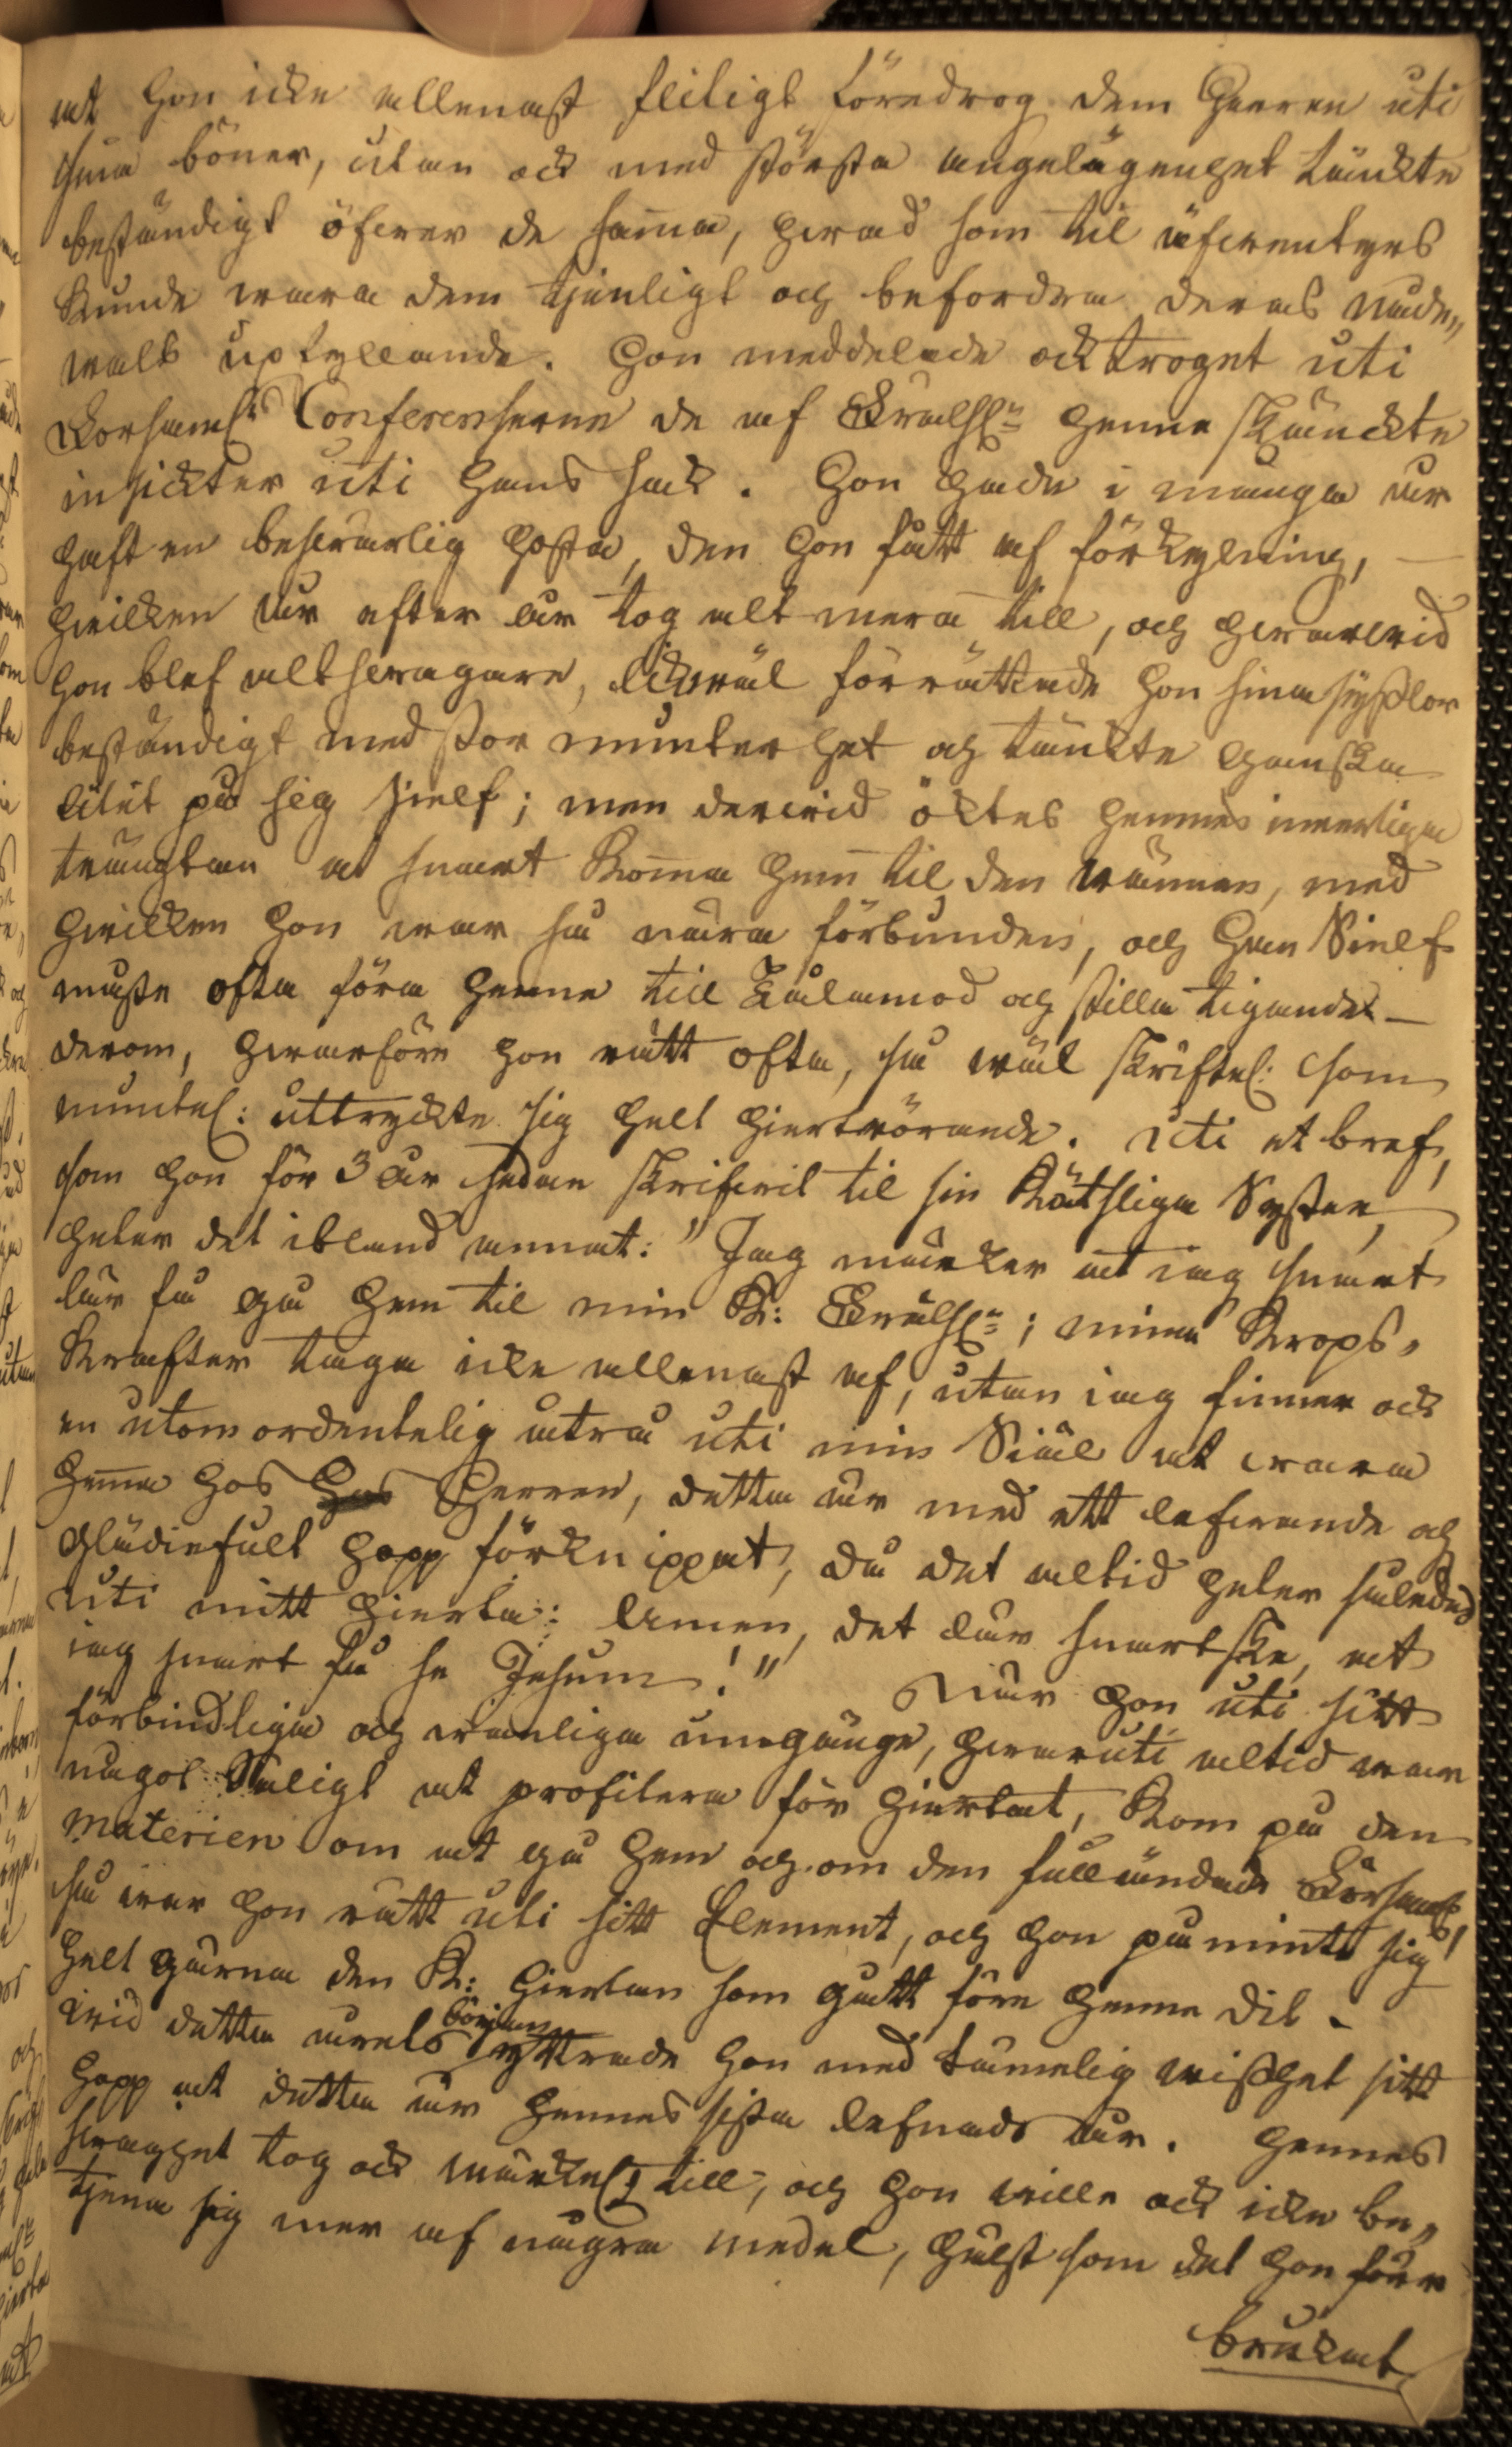 at hon icke allenast fleitigt föredrog dem Herren uti
sina böner, utan ock med största angelägenhet tänckte
beständigt öfwer de samma, hwad som til äfwentyrs
kunde wara dem tjenligt och befordra deras nåde„
walls upfyllande. Hon meddelade ock troget uti
Församl:s Conferenserne de af Frälsn: henne skänckte
insickter uti Hans sak. Hon hade i många år
haft en beswärlig hosta, den hon fått af förkylning, —
hwilken år efter år tog alt mera till, och hwarwid
hon blef alt swagare, likwäl förrättade hon sina sysslor
beständigt med stor munterhet och tänckte ganska
litet på sig sielf; men derwid öktes hennes innerliga
trängtan at snart komma hem til den wännen, med
hwilken hon war så nära förbunden, och Han Sielf
måste ofta föra henne till Tålamod och stilla tigande —
derom, hwarföre hon rätt ofta, så wäl skriftel: som
muntel: uttryckte sig helt hiertrörande. Uti et bref,
som hon för 3 år sedan skrifwit til sin Kötsliga Syster,
heter det ibland annat: "Jag märker at iag snart
lär få gå hem til min K: Frälsn:; mina Kropps„
Krafter taga icke allenast af, utan iag finner ock
en utomordentelig åtrå uti min Siäl at wara
hemma hos Herren, detta är med ett lefwande och
glädiefult hopp förknippat, då det altid heter således
uti mitt hierta: Amen, det lär snart ske, at
iag snart få se Jesum!" När hon uti sitt
förbindliga och wänliga umgänge, hwaruti altid war
något Saligt at profitera för hiertat, kom på den
Materien om at gå hem och om den fulländade Församl:
så war hon rätt uti sitt Element, och hon påminte sig
helt gärna den K: Hiertan som gått före henne dit.
Wid detta årets början yttrade hon med tämelig wisshet sitt
hopp at detta är hennes sista lefnads år. Hennes
swaghet tog ock märckel: till, och hon wille ock icke be„
tjena sig mer af några medel, hälst som det hon förr
brukat